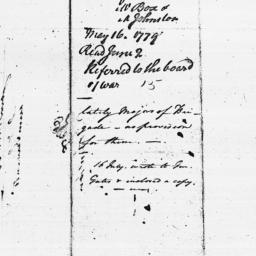 W Box &
A Johnston
May 16. 1779
Read June 2
Referred to the board
of war 15
lately Majors of Bri-
gade - as provision
for them. -
16 July. wrote to Gen.
Gates & inclosed a copy.